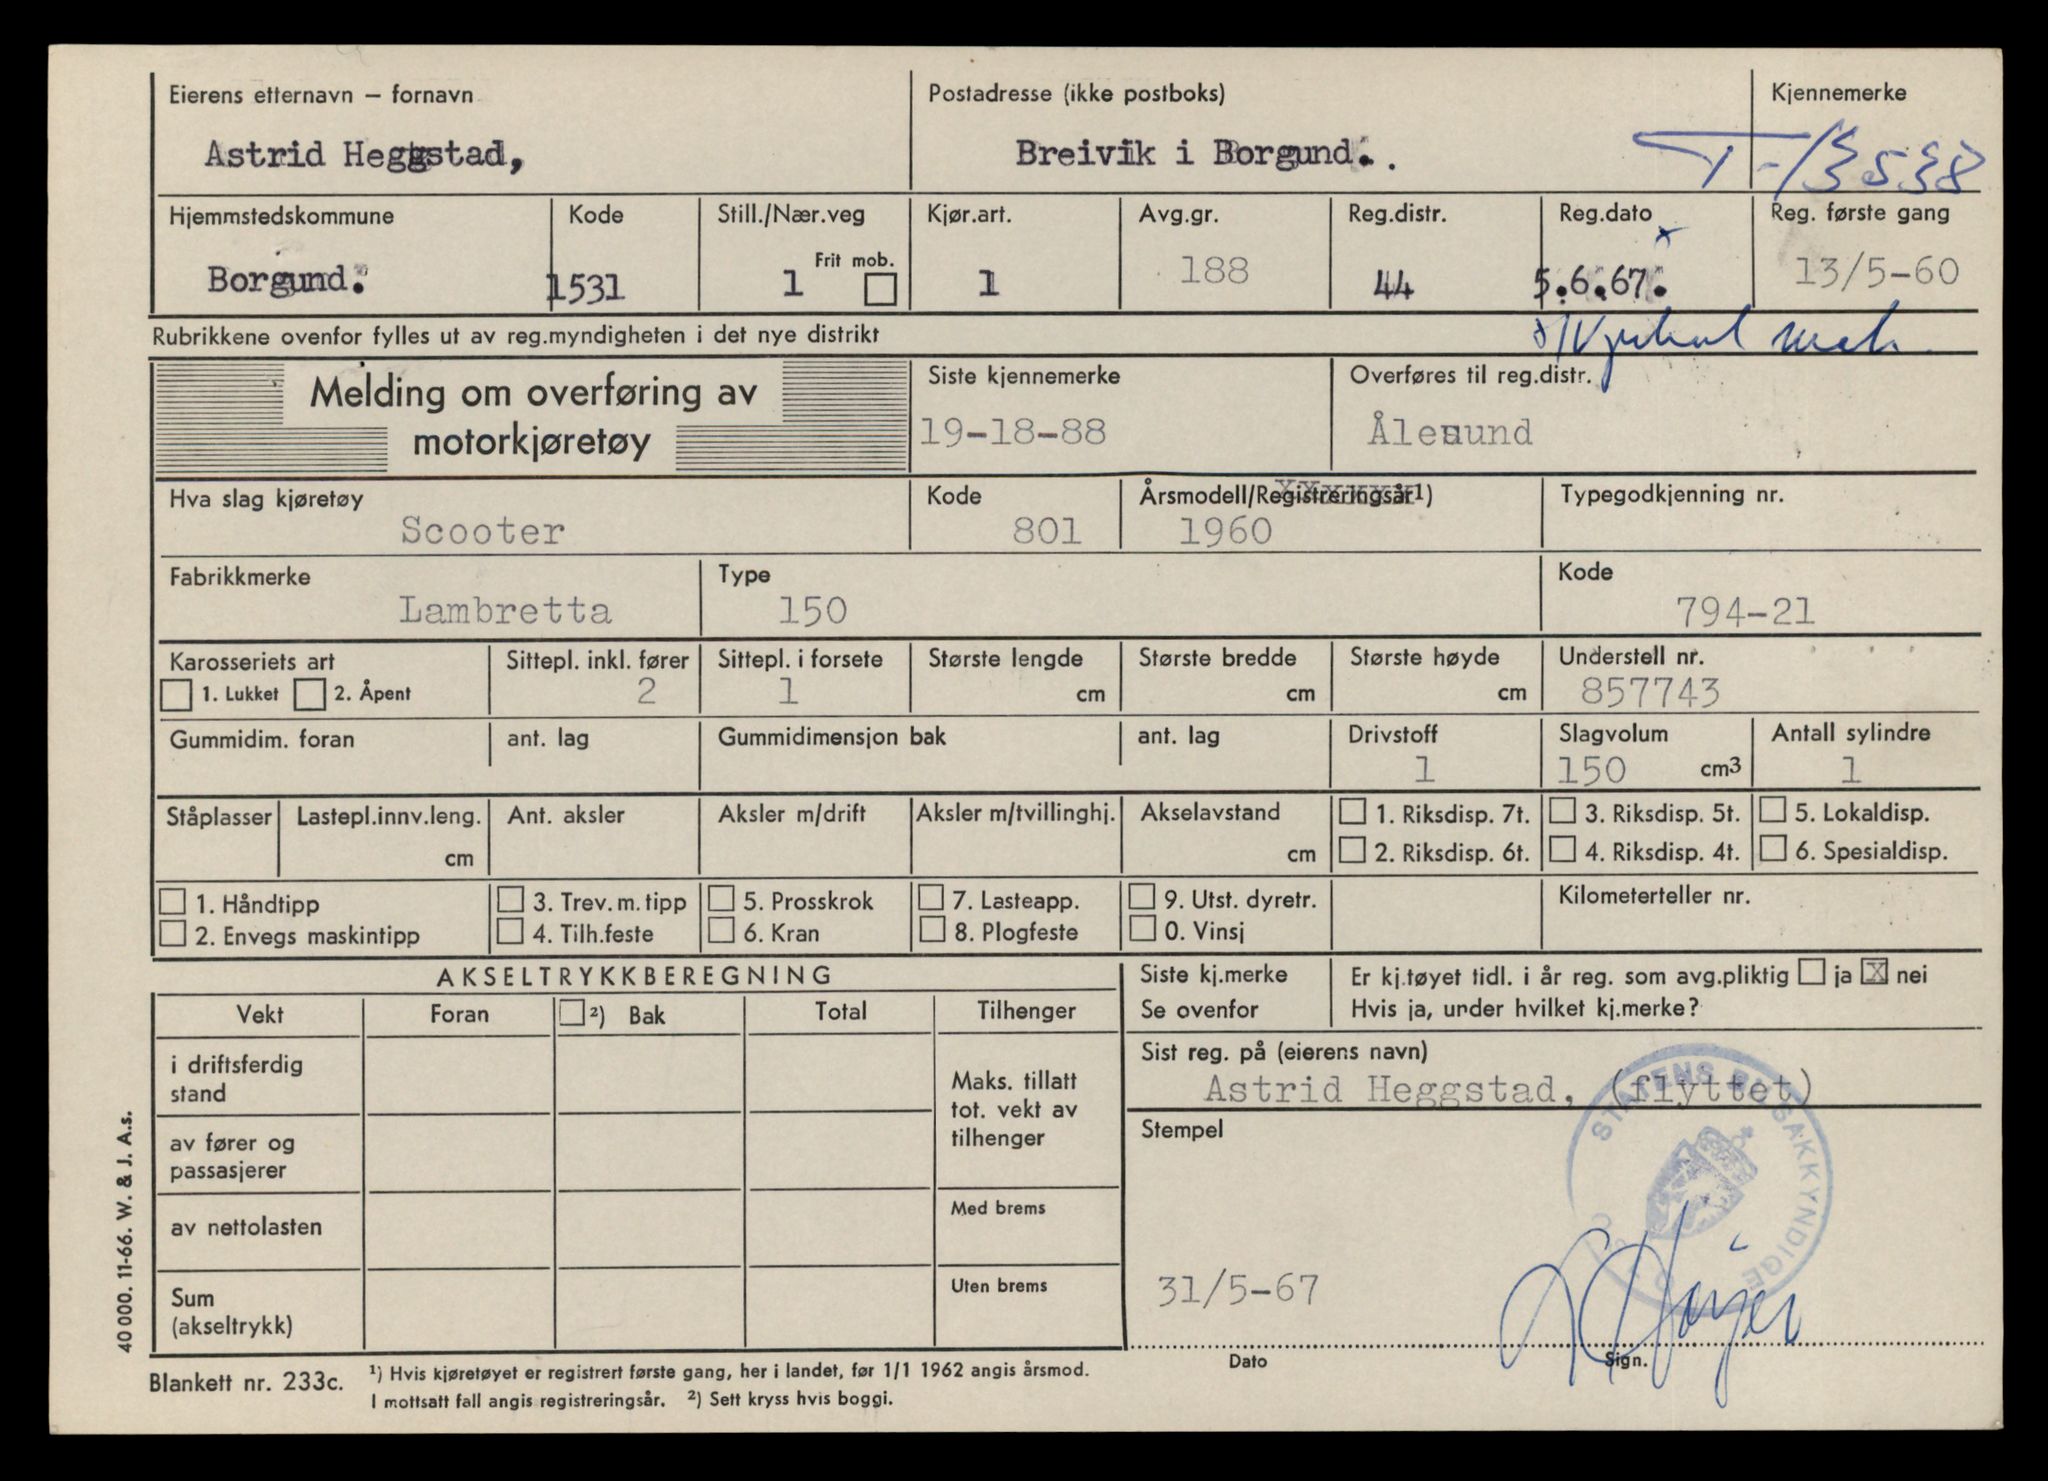 Eierens etternavn – fornavn
Astrid Heggstad,
Postadresse (ikke postboks)
Breivik i Borgund..
Kjennemerke
T-13538
Hjemmstedskommune
Borgund.
Kode
1531
Still./Nær.veg
1
Frit mob.
Kjør.art.
1
Avg.gr.
188
Reg.distr.
44
Reg.dato
x
5.6.67.
Reg. første gang
13/5-60
Rubrikkene ovenfor fylles ut av reg.myndigheten i det nye distrikt
Melding om overføring av
motorkjøretøy
Siste kjennemerke
19-18-88
Overføres til reg.distr.
Ålesund
Hva slag kjøretøy
Scooter
Kode
801
Årsmodell/Registreringsår1)
1960
Typegodkjenning nr.
Fabrikkmerke
Lambretta
Type
150
Kode
794-21
Karosseriets art
1. Lukket 2. Åpent
Sittepl. inkl. fører
2
Sittepl. i forsete
1
Største lengde
cm
Største bredde
cm
Største høyde
cm
Understell nr.
857743
Gummidim. foran
ant. lag
Gummidimensjon bak
ant. lag
Drivstoff
1
Slagvolum
150 cm3
Antall sylindre
1
Ståplasser
Lastepl.innv.leng.
cm
Ant. aksler
Aksler m/drift
Aksler m/tvillinghj.
Akselavstand
cm
1. Riksdisp. 7t.
2. Riksdisp. 6t.
3. Riksdisp. 5t.
4. Riksdisp. 4t.
5. Lokaldisp.
6. Spesialdisp.
1. Håndtipp
2. Envegs maskintipp
3. Trev. m. tipp
4. Tilh.feste
5. Prosskrok
6. Kran
7. Lasteapp.
8. Plogfeste
9. Utst. dyretr.
0. Vinsj
Kilometerteller nr.
AKSELTRYKKBEREGNING
Vekt
Foran
2) Bak
Total
Tilhenger
i driftsferdig
stand
av fører og
passasjerer
av nettolasten
Sum
(akseltrykk)
Maks. tillatt
tot. vekt av
tilhenger
Med brems
Uten brems
Siste kj.merke
Se ovenfor
Er kj.tøyet tidl. i år reg. som avg.pliktig ja X nei
Hvis ja, under hvilket kj.merke?
Sist reg. på (eierens navn)
Astrid Heggstad, (flyttet)
Stempel
STATENS BILSAKKYNDIGE
31/5-67
Dato
Sign.
40 000. 11-66. W. & J. A.s.
Blankett nr. 233c.
1) Hvis kjøretøyet er registrert første gang, her i landet, før 1/1 1962 angis årsmod.
I mottsatt fall angis registreringsår. 2) Sett kryss hvis boggi.